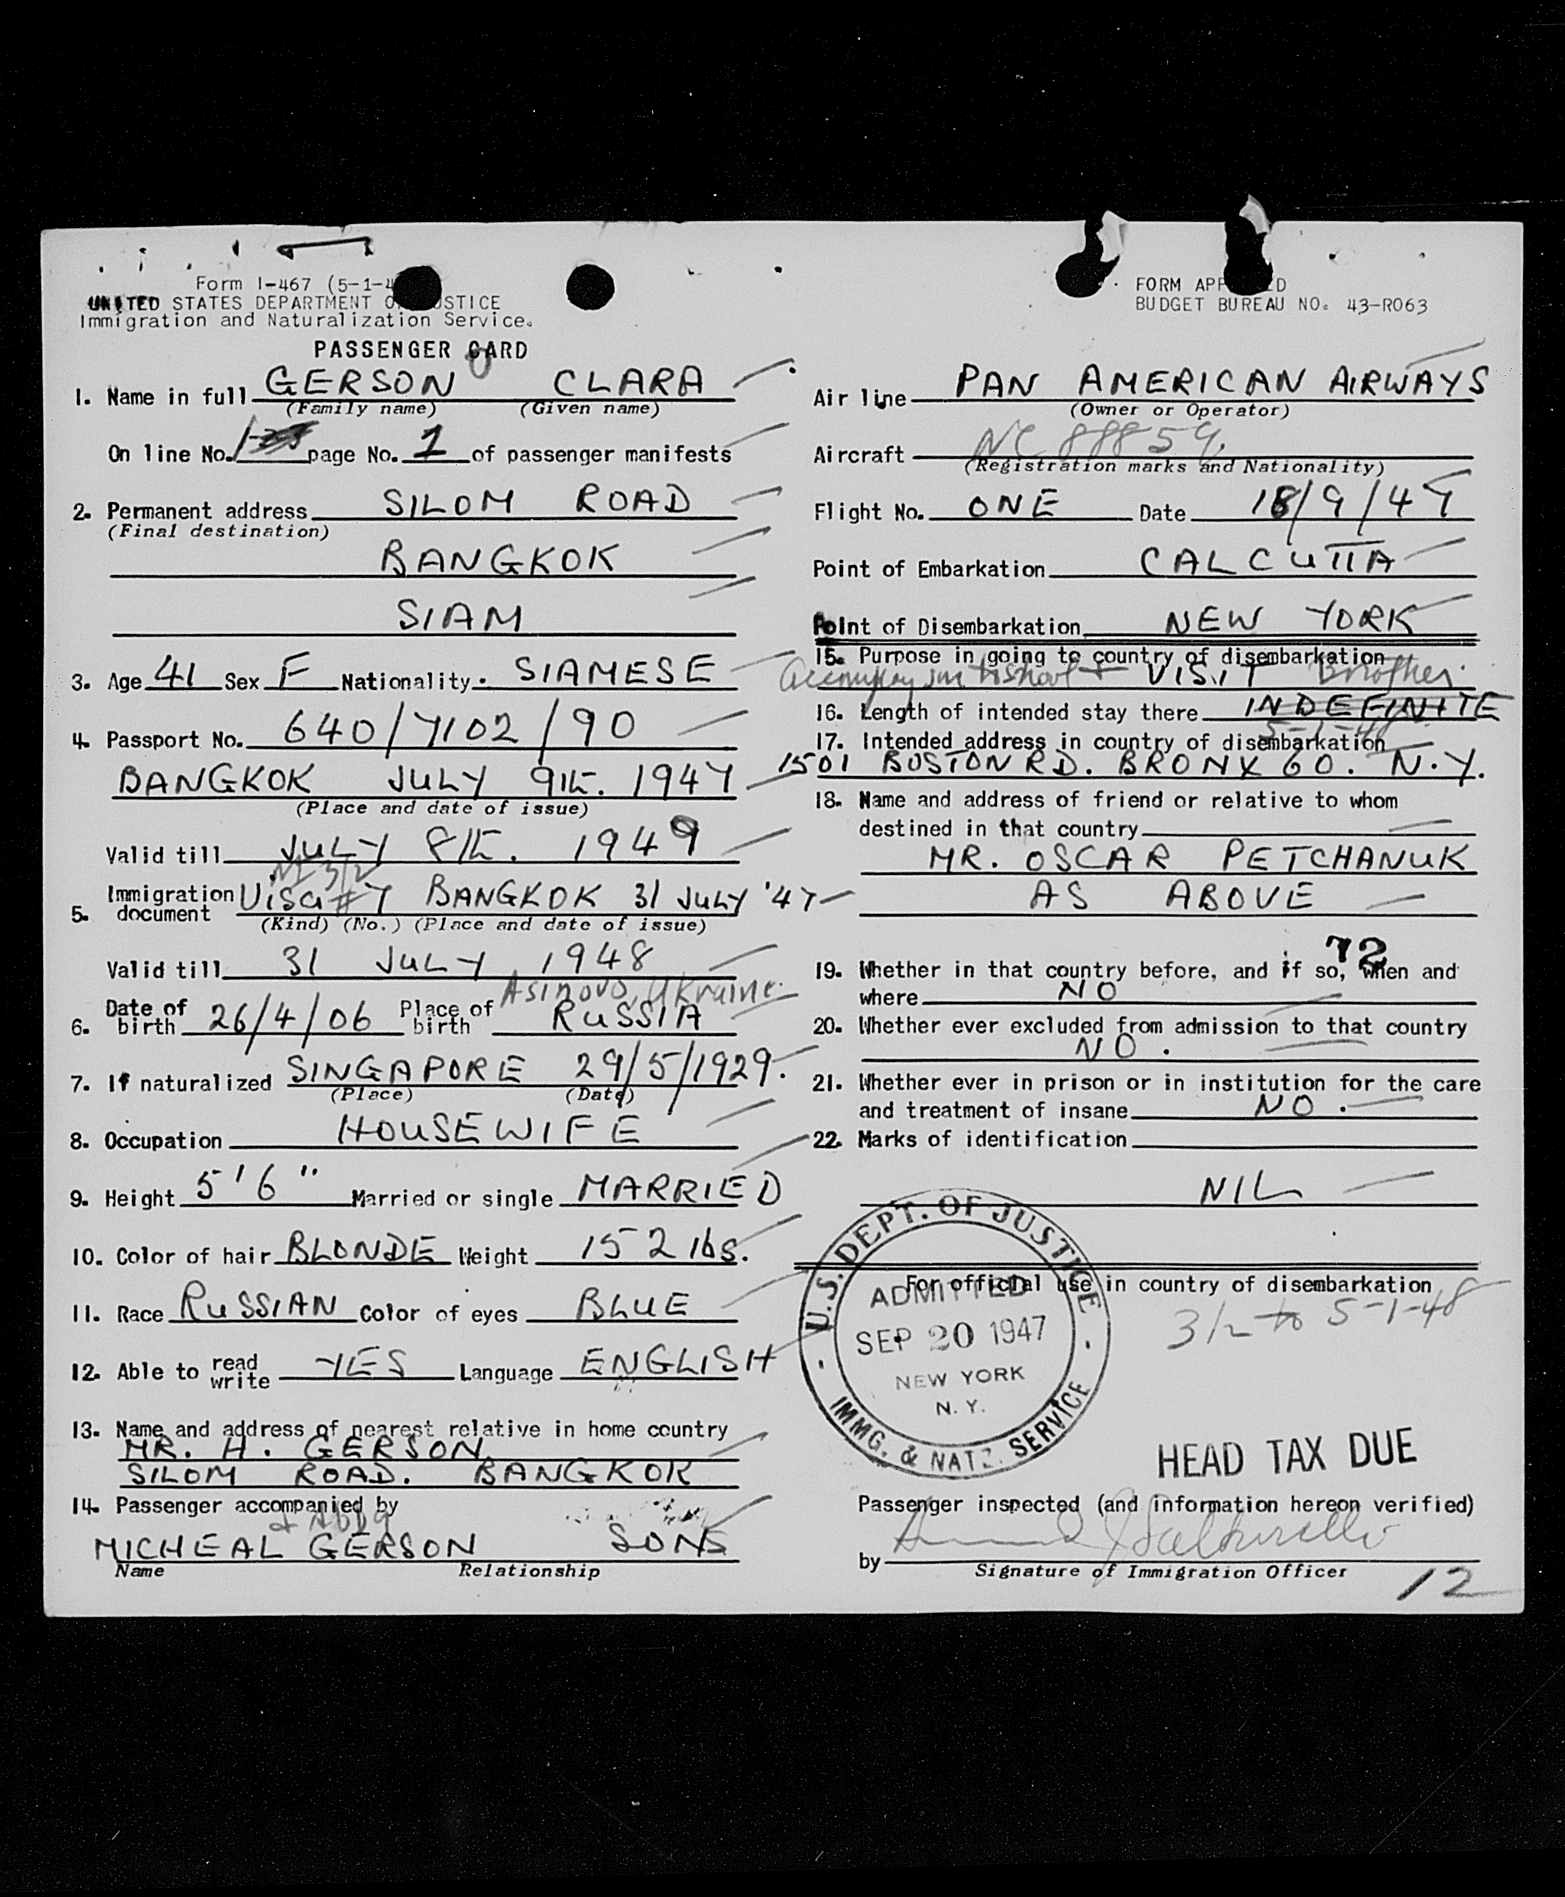 Form I-467 (5-1-4
UNITED STATES DEPARTMENT OF JUSTICE
Immigration and Naturalization Service.
PASSENGER CARD
1. Name in full GERSON CLARA
(Family name) (Given name)
On line No. page No. 1 of passenger manifests
2. Permanent address SILOM ROAD
(Final destination)
BANGKOK
SIAM
3. Age 41 Sex F Nationality. SIAMESE
4. Passport No. 640/7102/90
BANGKOK JULY 9th. 1947
(Place and date of issue)
Valid till JULY 8th. 1949
NI 3/2
5. Immigration document Visa #7 BANGKOK 31 JULY '47
(Kind) (No.) (Place and date of issue)
Valid till 31 JULY 1948
Ukraine.
6. Date of birth 26/4/06 Place of birth RUSSIA
7. If naturalized SINGAPORE 29/5/1929.
(Place) (Date)
8. Occupation HOUSEWIFE
9. Height 5'6" Married or single MARRIED
10. Color of hair BLONDE Weight 152 lbs.
11. Race RUSSIAN Color of eyes BLUE
12. Able to read write YES Language ENGLISH
13. Name and address of nearest relative in home country
MR. H. GERSON
SILOM ROAD. BANGKOK
14. Passenger accompanied by
MICHEAL GERSON SONS
Name Relationship
FORM APPROVED
BUDGET BUREAU NO. 43-R063
Air line PAN AMERICAN AIRWAYS
(Owner or Operator)
Aircraft NC 88859.
(Registration marks and Nationality)
Flight No. ONE Date 18/9/47
Point of Embarkation CALCUTTA
Point of Disembarkation NEW YORK
15. Purpose in going to country of disembarkation
VISIT Brother.
16. Length of intended stay there INDEFINITE
5-1-48
17. Intended address in country of disembarkation
1501 BOSTON RD. BRONX 60. N.Y.
18. Name and address of friend or relative to whom
destined in that country
MR. OSCAR PETCHANUK
AS ABOVE
72
19. Whether in that country before, and if so, when and
where NO
20. Whether ever excluded from admission to that country
NO.
21. Whether ever in prison or in institution for the care
and treatment of insane NO.
22. Marks of identification
NIL
For official use in country of disembarkation
3/2 to 5-1-48
U.S. DEPT. OF JUSTICE
ADMITTED
SEP 20 1947
NEW YORK
N. Y.
IMMG. & NATZ. SERVICE
HEAD TAX DUE
Passenger inspected (and information hereon verified)
by
Signature of Immigration Officer
12